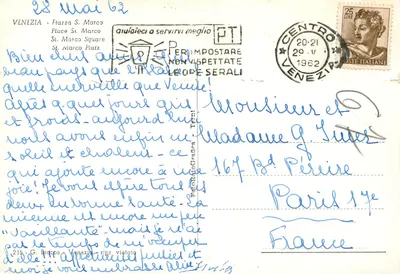 28 Mai 62
VENEZIA - Piazza S. Marco
Place St. Marc
St. Marco Square
St. Marco Platz
aiutateci a servirvi meglio
PT
PER IMPOSTARE
NON ASPETTATE
LE ORE SERALI
CENTRO
20-21
29.V
1962
VENEZIA
POSTE ITALIANE
Bien chers amis
beau pays que l'Italie
quelle merveille que Venise!
Après quelques jours gris
et frais - aujourd'hui
nous avons enfin
soleil et chaleur - ce
qui ajoute encore à la
joie! Je vous espère tous
deux en bonne santé - la
mienne est encore un peu
"vacillante" mais je n'ai
pas le temps de m'occuper
d'elle!!
moi je vous embrasse
Monsieur et
Madame G.
167 Bd Péreire
Paris 17e
France